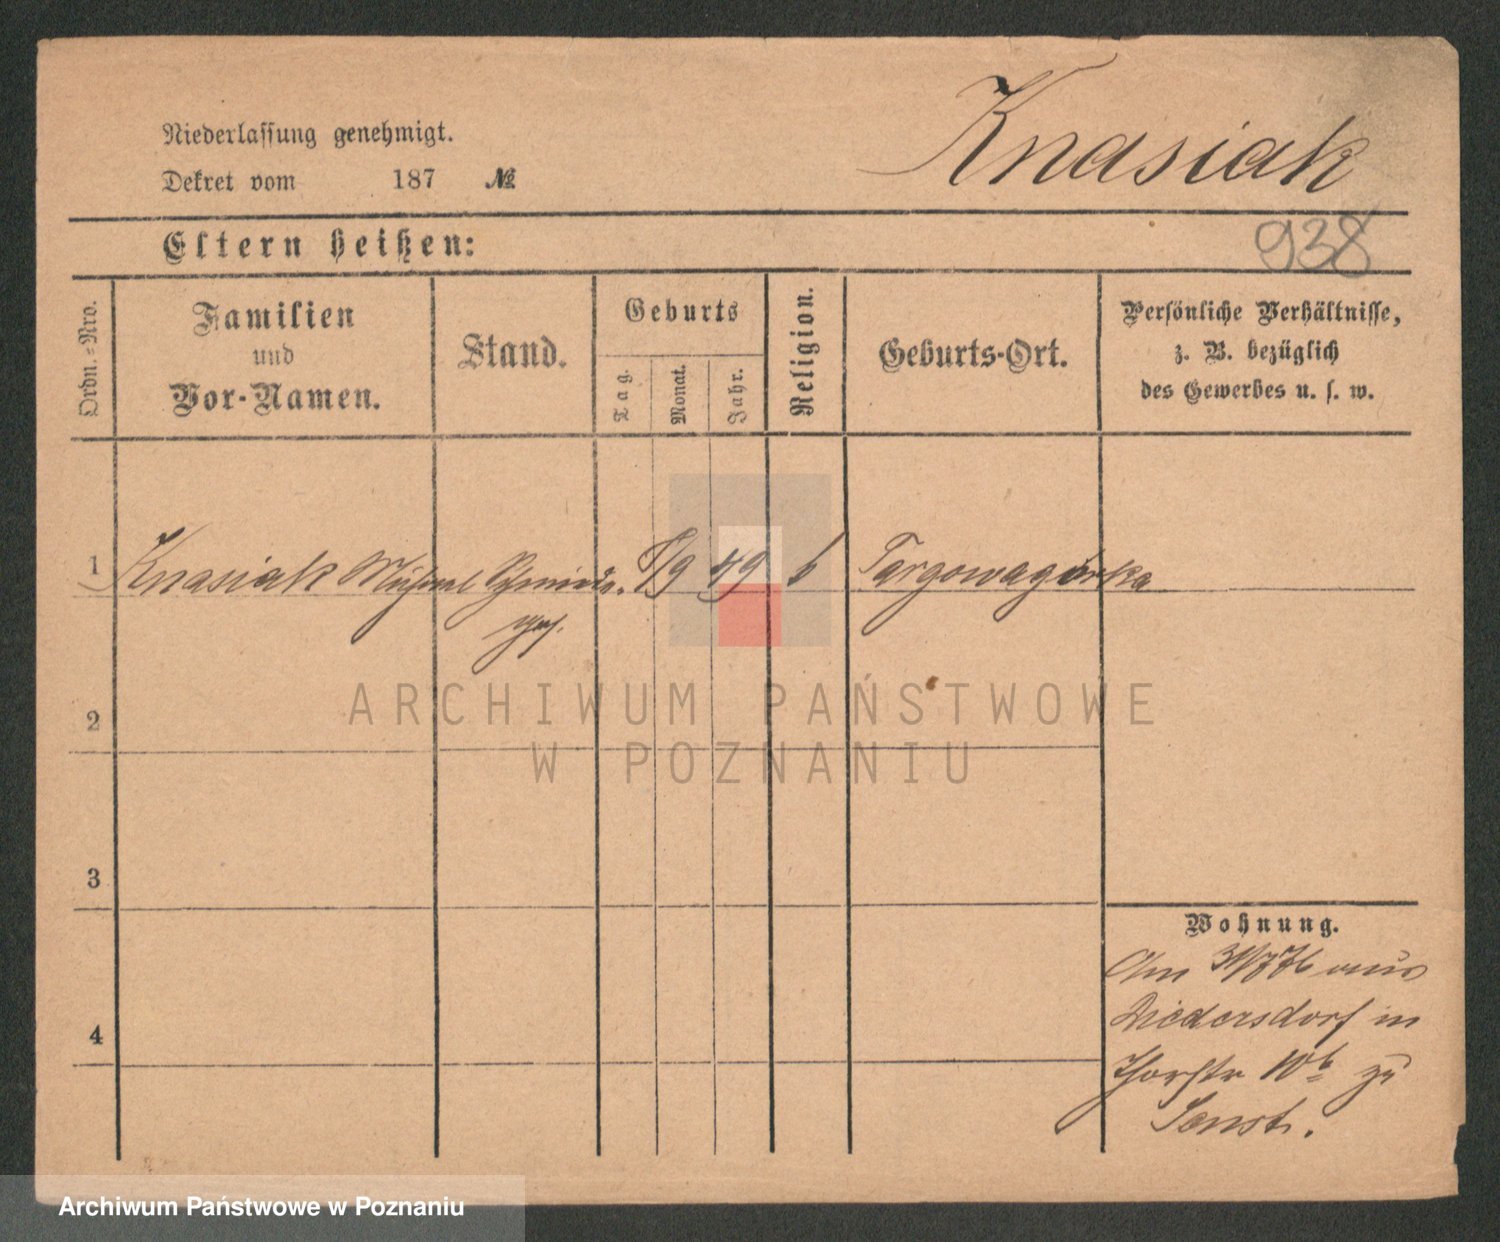 Knasiak
Niederlassung genehmigt.
Dekret vom 187 №
938
Eltern heißen:
Ordn.-Nro.
Familien
und
Vor-Namen.
Stand.
Geburts
Tag.
Monat.
Jahr.
Religion.
Geburts-Ort.
Persönliche Verhältnisse,
z. B. bezüglich
des Gewerbes u. s. w.
1 Knasiak Michael Schmiede- /9 49 k Targowagórka
ges.
2
3
4
Wohnung.
Am 31/7 76 aus
Niedersdorf in
Thorstr 10b zu
Const.
ARCHIWUM PAŃSTWOWE
W POZNANIU
Archiwum Państwowe w Poznaniu